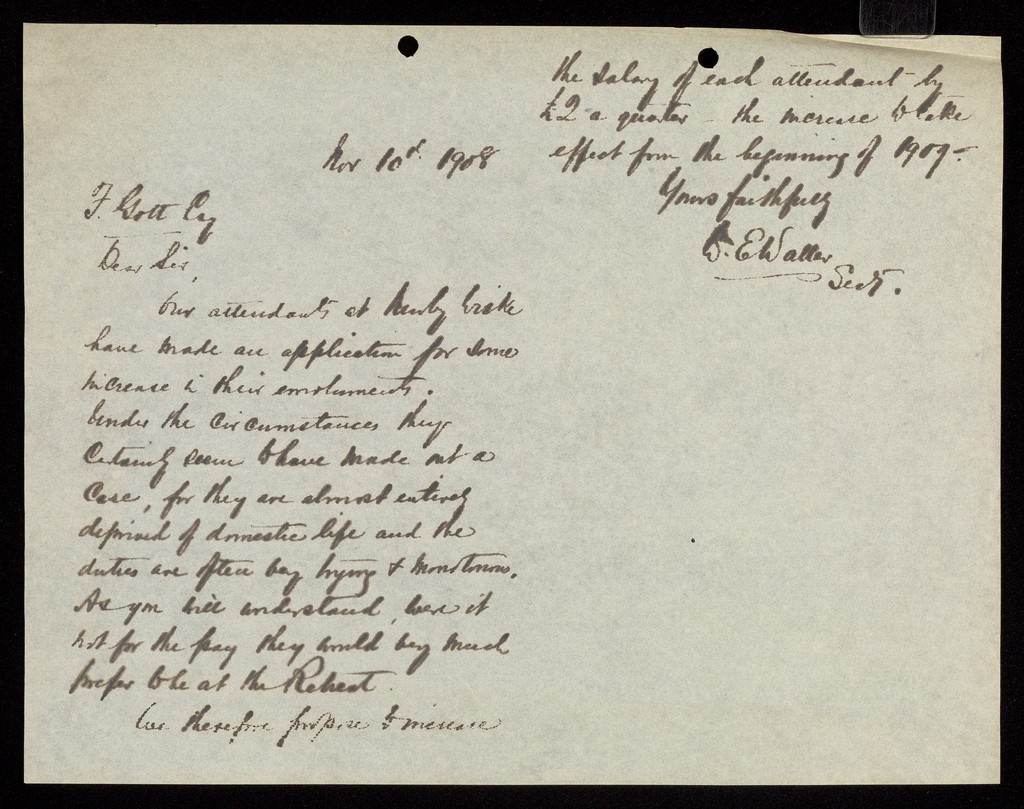 Nov 10th 1908
F. Gott Esq
Dear Sir,
Our attendants at Newby Wiske
have made an application for some
increase in their emoluments.
Under the circumstances they
certainly seem to have made out a
case, for they are almost entirely
deprived of domestic life and the
duties are often very trying & monotonous.
As you will understand, were it
not for the pay they would very much
prefer to be at the Retreat.
We therefore propose to increase
the salary of each attendant by
£2 a quarter – the increase to take
effect from the beginning of 1909 –
Yours faithfully
E Waller
Secy.